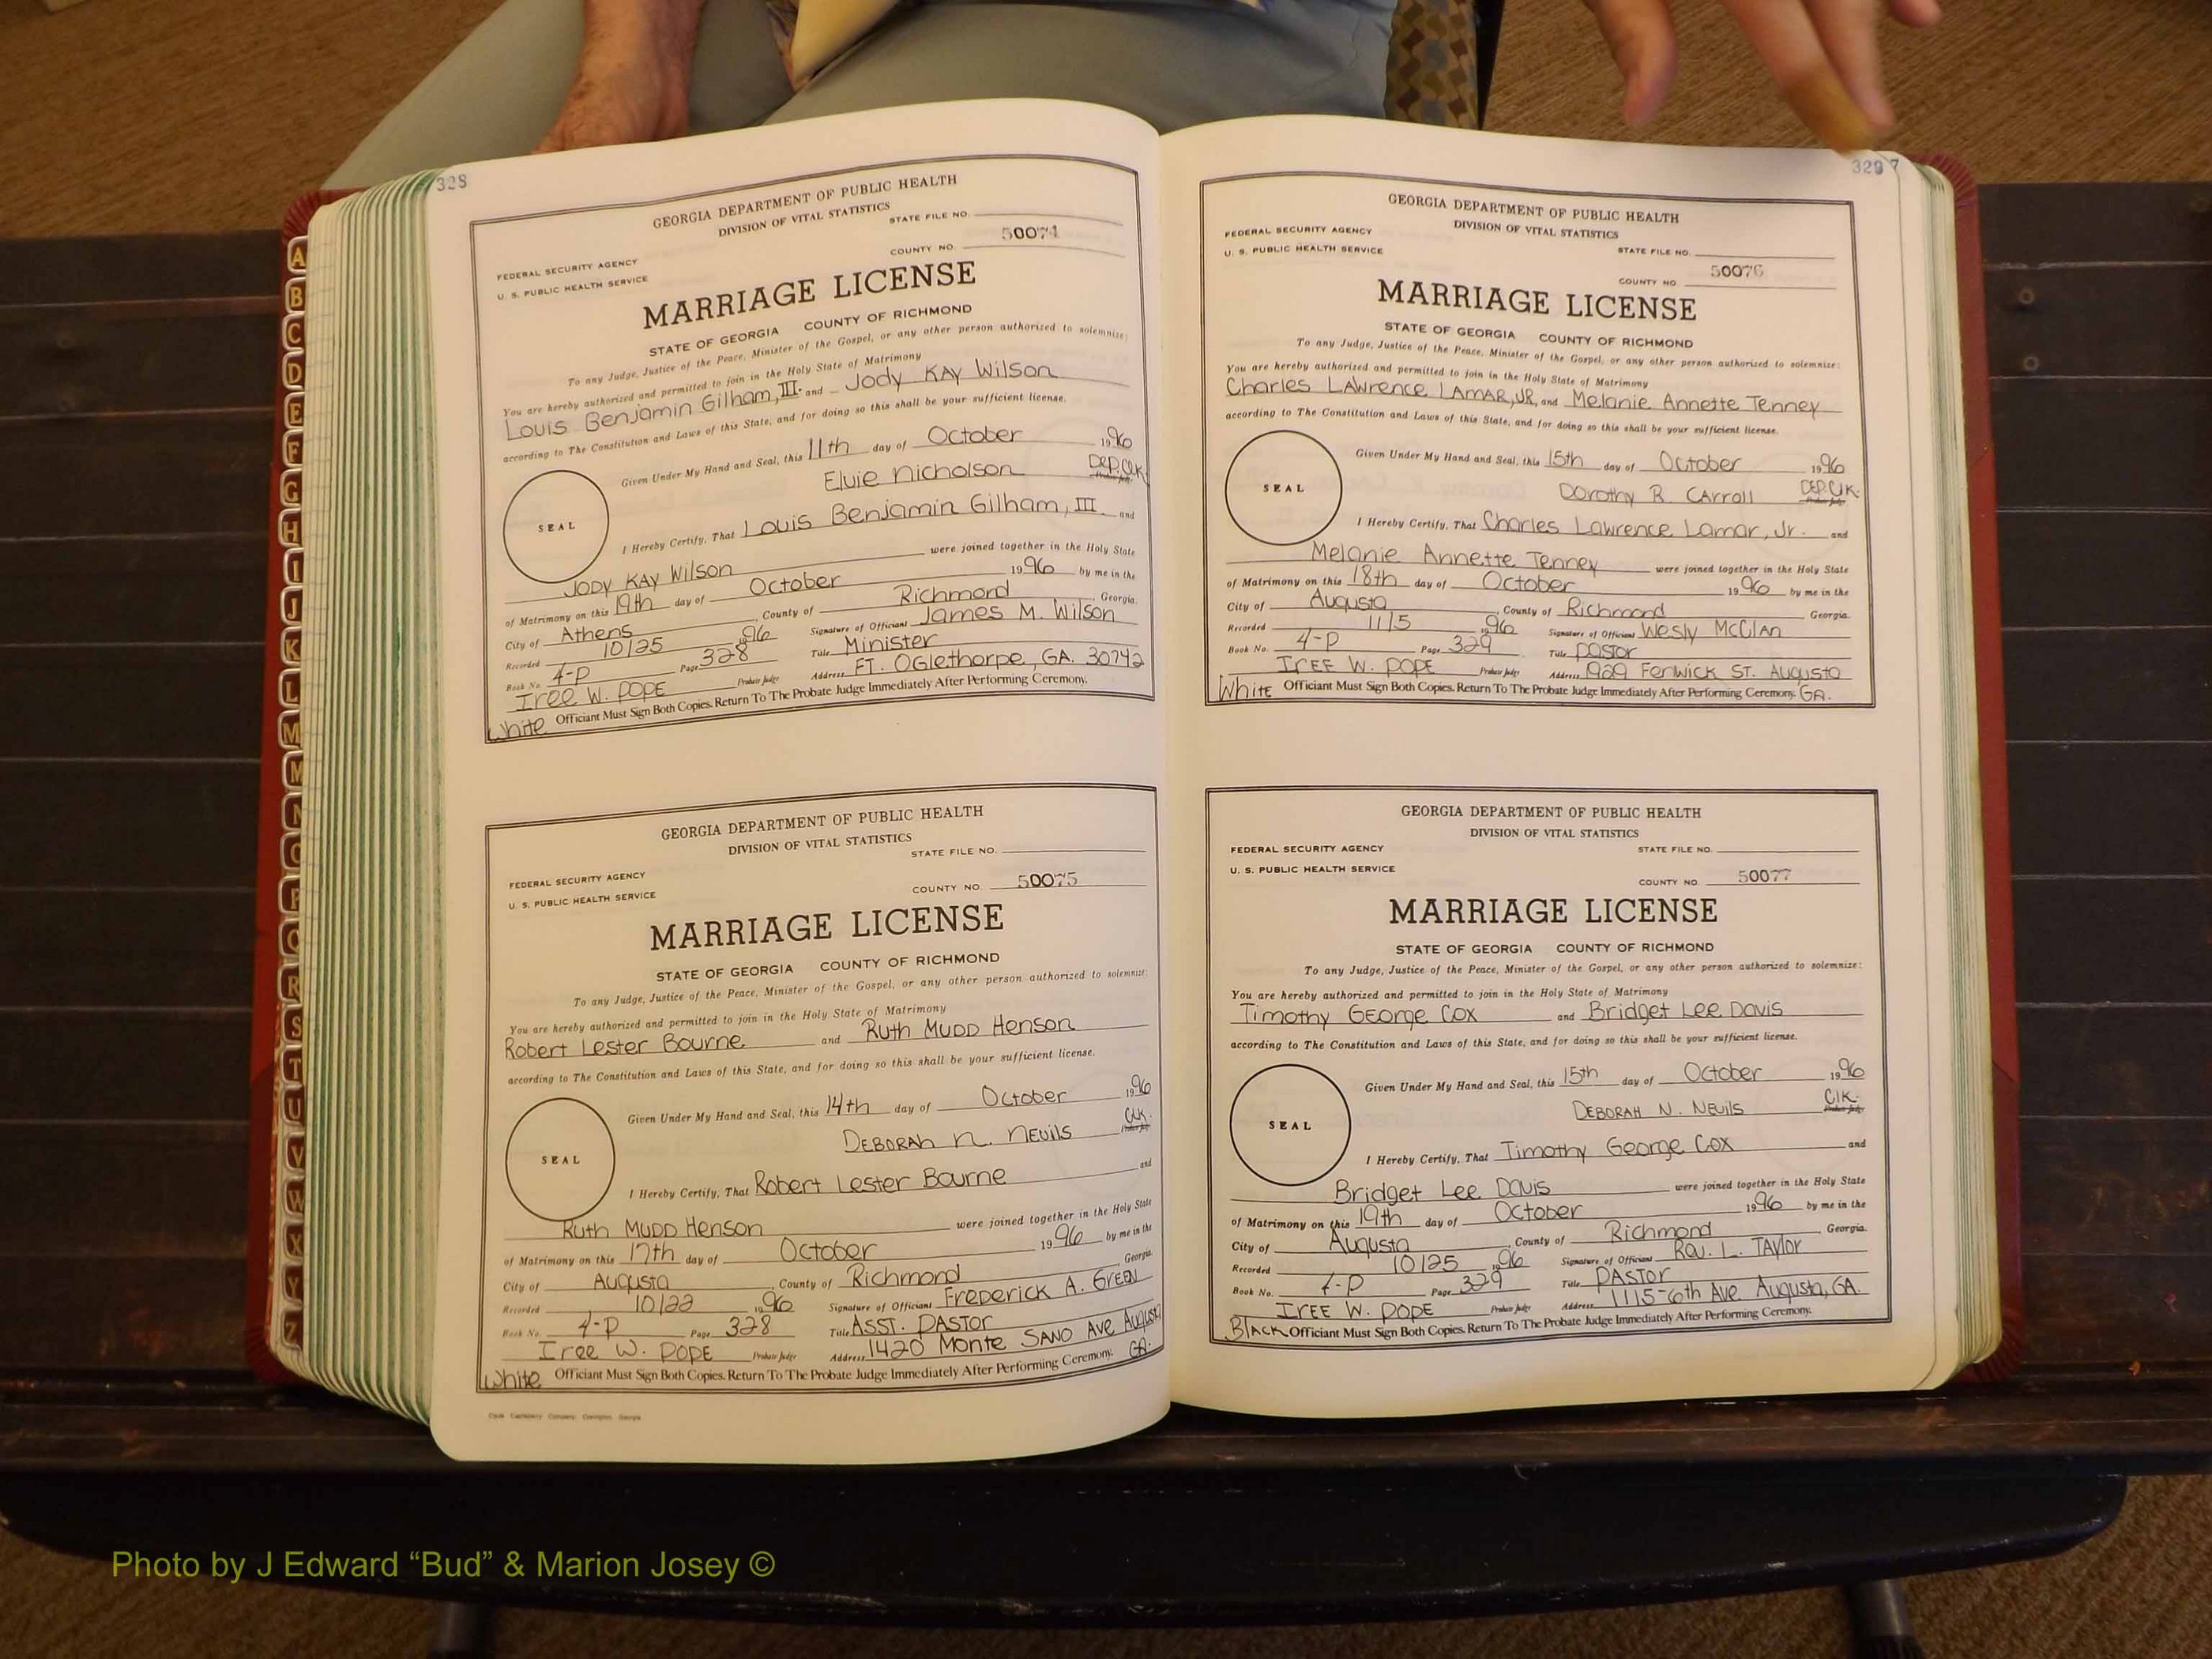 328
GEORGIA DEPARTMENT OF PUBLIC HEALTH
DIVISION OF VITAL STATISTICS
STATE FILE NO.
COUNTY NO. 50074
FEDERAL SECURITY AGENCY
U. S. PUBLIC HEALTH SERVICE
MARRIAGE LICENSE
STATE OF GEORGIA COUNTY OF RICHMOND
To any Judge, Justice of the Peace, Minister of the Gospel, or any other person authorized to solemnize:
You are hereby authorized and permitted to join in the Holy State of Matrimony
Louis Benjamin Gilham, III. and Jody KAY Wilson
according to The Constitution and Laws of this State, and for doing so this shall be your sufficient license.
Given Under My Hand and Seal, this 11th day of October 1996
Elvie Nicholson DEP. CLK.
SEAL
I Hereby Certify, That Louis Benjamin Gilham, III and
Jody KAY Wilson were joined together in the Holy State
of Matrimony on this 19th day of October 1996 by me in the
City of Athens, County of Richmond, Georgia.
Recorded 10/25 1996 Signature of Officiant James M. Wilson
Book No. 4-P Page 328 Title Minister
Iree W. POPE Probate Judge Address FT. OGlethorpe, GA. 30742
White Officiant Must Sign Both Copies. Return To The Probate Judge Immediately After Performing Ceremony.
GEORGIA DEPARTMENT OF PUBLIC HEALTH
DIVISION OF VITAL STATISTICS
STATE FILE NO.
FEDERAL SECURITY AGENCY
COUNTY NO. 50075
U. S. PUBLIC HEALTH SERVICE
MARRIAGE LICENSE
STATE OF GEORGIA COUNTY OF RICHMOND
To any Judge, Justice of the Peace, Minister of the Gospel, or any other person authorized to solemnize:
You are hereby authorized and permitted to join in the Holy State of Matrimony
Robert Lester Bourne and Ruth MUDD Henson
according to The Constitution and Laws of this State, and for doing so this shall be your sufficient license.
Given Under My Hand and Seal, this 14th day of October 1996
DEBORAH N. NEVILS CLK.
SEAL
I Hereby Certify, That Robert Lester Bourne and
Ruth MUDD Henson were joined together in the Holy State
of Matrimony on this 17th day of October 1996 by me in the
City of Augusta, County of Richmond Georgia.
Recorded 10/22 1996 Signature of Officiant FREDERICK A. GREEN
Book No. 4-P Page 328 Title ASST. PASTOR
Iree W. POPE Probate Judge Address 1420 Monte SANO Ave Augusta GA.
White Officiant Must Sign Both Copies. Return To The Probate Judge Immediately After Performing Ceremony.
329 7
GEORGIA DEPARTMENT OF PUBLIC HEALTH
DIVISION OF VITAL STATISTICS
FEDERAL SECURITY AGENCY
U. S. PUBLIC HEALTH SERVICE
STATE FILE NO.
COUNTY NO. 50076
MARRIAGE LICENSE
STATE OF GEORGIA COUNTY OF RICHMOND
To any Judge, Justice of the Peace, Minister of the Gospel, or any other person authorized to solemnize:
You are hereby authorized and permitted to join in the Holy State of Matrimony
Charles LAWrence LAMAR, JR. and Melanie Annette Tenney
according to The Constitution and Laws of this State, and for doing so this shall be your sufficient license.
Given Under My Hand and Seal, this 15th day of October 1996
Dorothy R. CArroll DEP. CLK.
SEAL
I Hereby Certify, That Charles Lawrence Lamar, Jr. and
Melanie Annette Tenney were joined together in the Holy State
of Matrimony on this 18th day of October 1996 by me in the
City of Augusta, County of Richmond Georgia.
Recorded 11/5 1996 Signature of Officiant Wesly McClAn
Book No. 4-P Page 329 Title PASTOR
IREE W. POPE Probate Judge Address 1929 Fenwick ST. Augusta
White Officiant Must Sign Both Copies. Return To The Probate Judge Immediately After Performing Ceremony. GA.
GEORGIA DEPARTMENT OF PUBLIC HEALTH
DIVISION OF VITAL STATISTICS
FEDERAL SECURITY AGENCY STATE FILE NO.
U. S. PUBLIC HEALTH SERVICE
COUNTY NO. 50077
MARRIAGE LICENSE
STATE OF GEORGIA COUNTY OF RICHMOND
To any Judge, Justice of the Peace, Minister of the Gospel, or any other person authorized to solemnize:
You are hereby authorized and permitted to join in the Holy State of Matrimony
Timothy GEOrge Cox and Bridget Lee Davis
according to The Constitution and Laws of this State, and for doing so this shall be your sufficient license.
Given Under My Hand and Seal, this 15th day of October 1996
DEBORAH N. NEVILS CLK.
SEAL
I Hereby Certify, That Timothy George Cox and
Bridget Lee Davis were joined together in the Holy State
of Matrimony on this 19th day of October 1996 by me in the
City of Augusta, County of Richmond Georgia.
Recorded 10/25 1996 Signature of Officiant Rev. L. TAYlor
Book No. 4-P Page 329 Title PASTOR
IREE W. POPE Probate Judge Address 1115-6th Ave Augusta, GA.
BlACK Officiant Must Sign Both Copies. Return To The Probate Judge Immediately After Performing Ceremony.
A
B
C
D
E
F
G
H
I
J
K
L
M
M
N
O
P
Q
R
S
T
U
V
W
X
Y
Z
Photo by J Edward “Bud” & Marion Josey ©